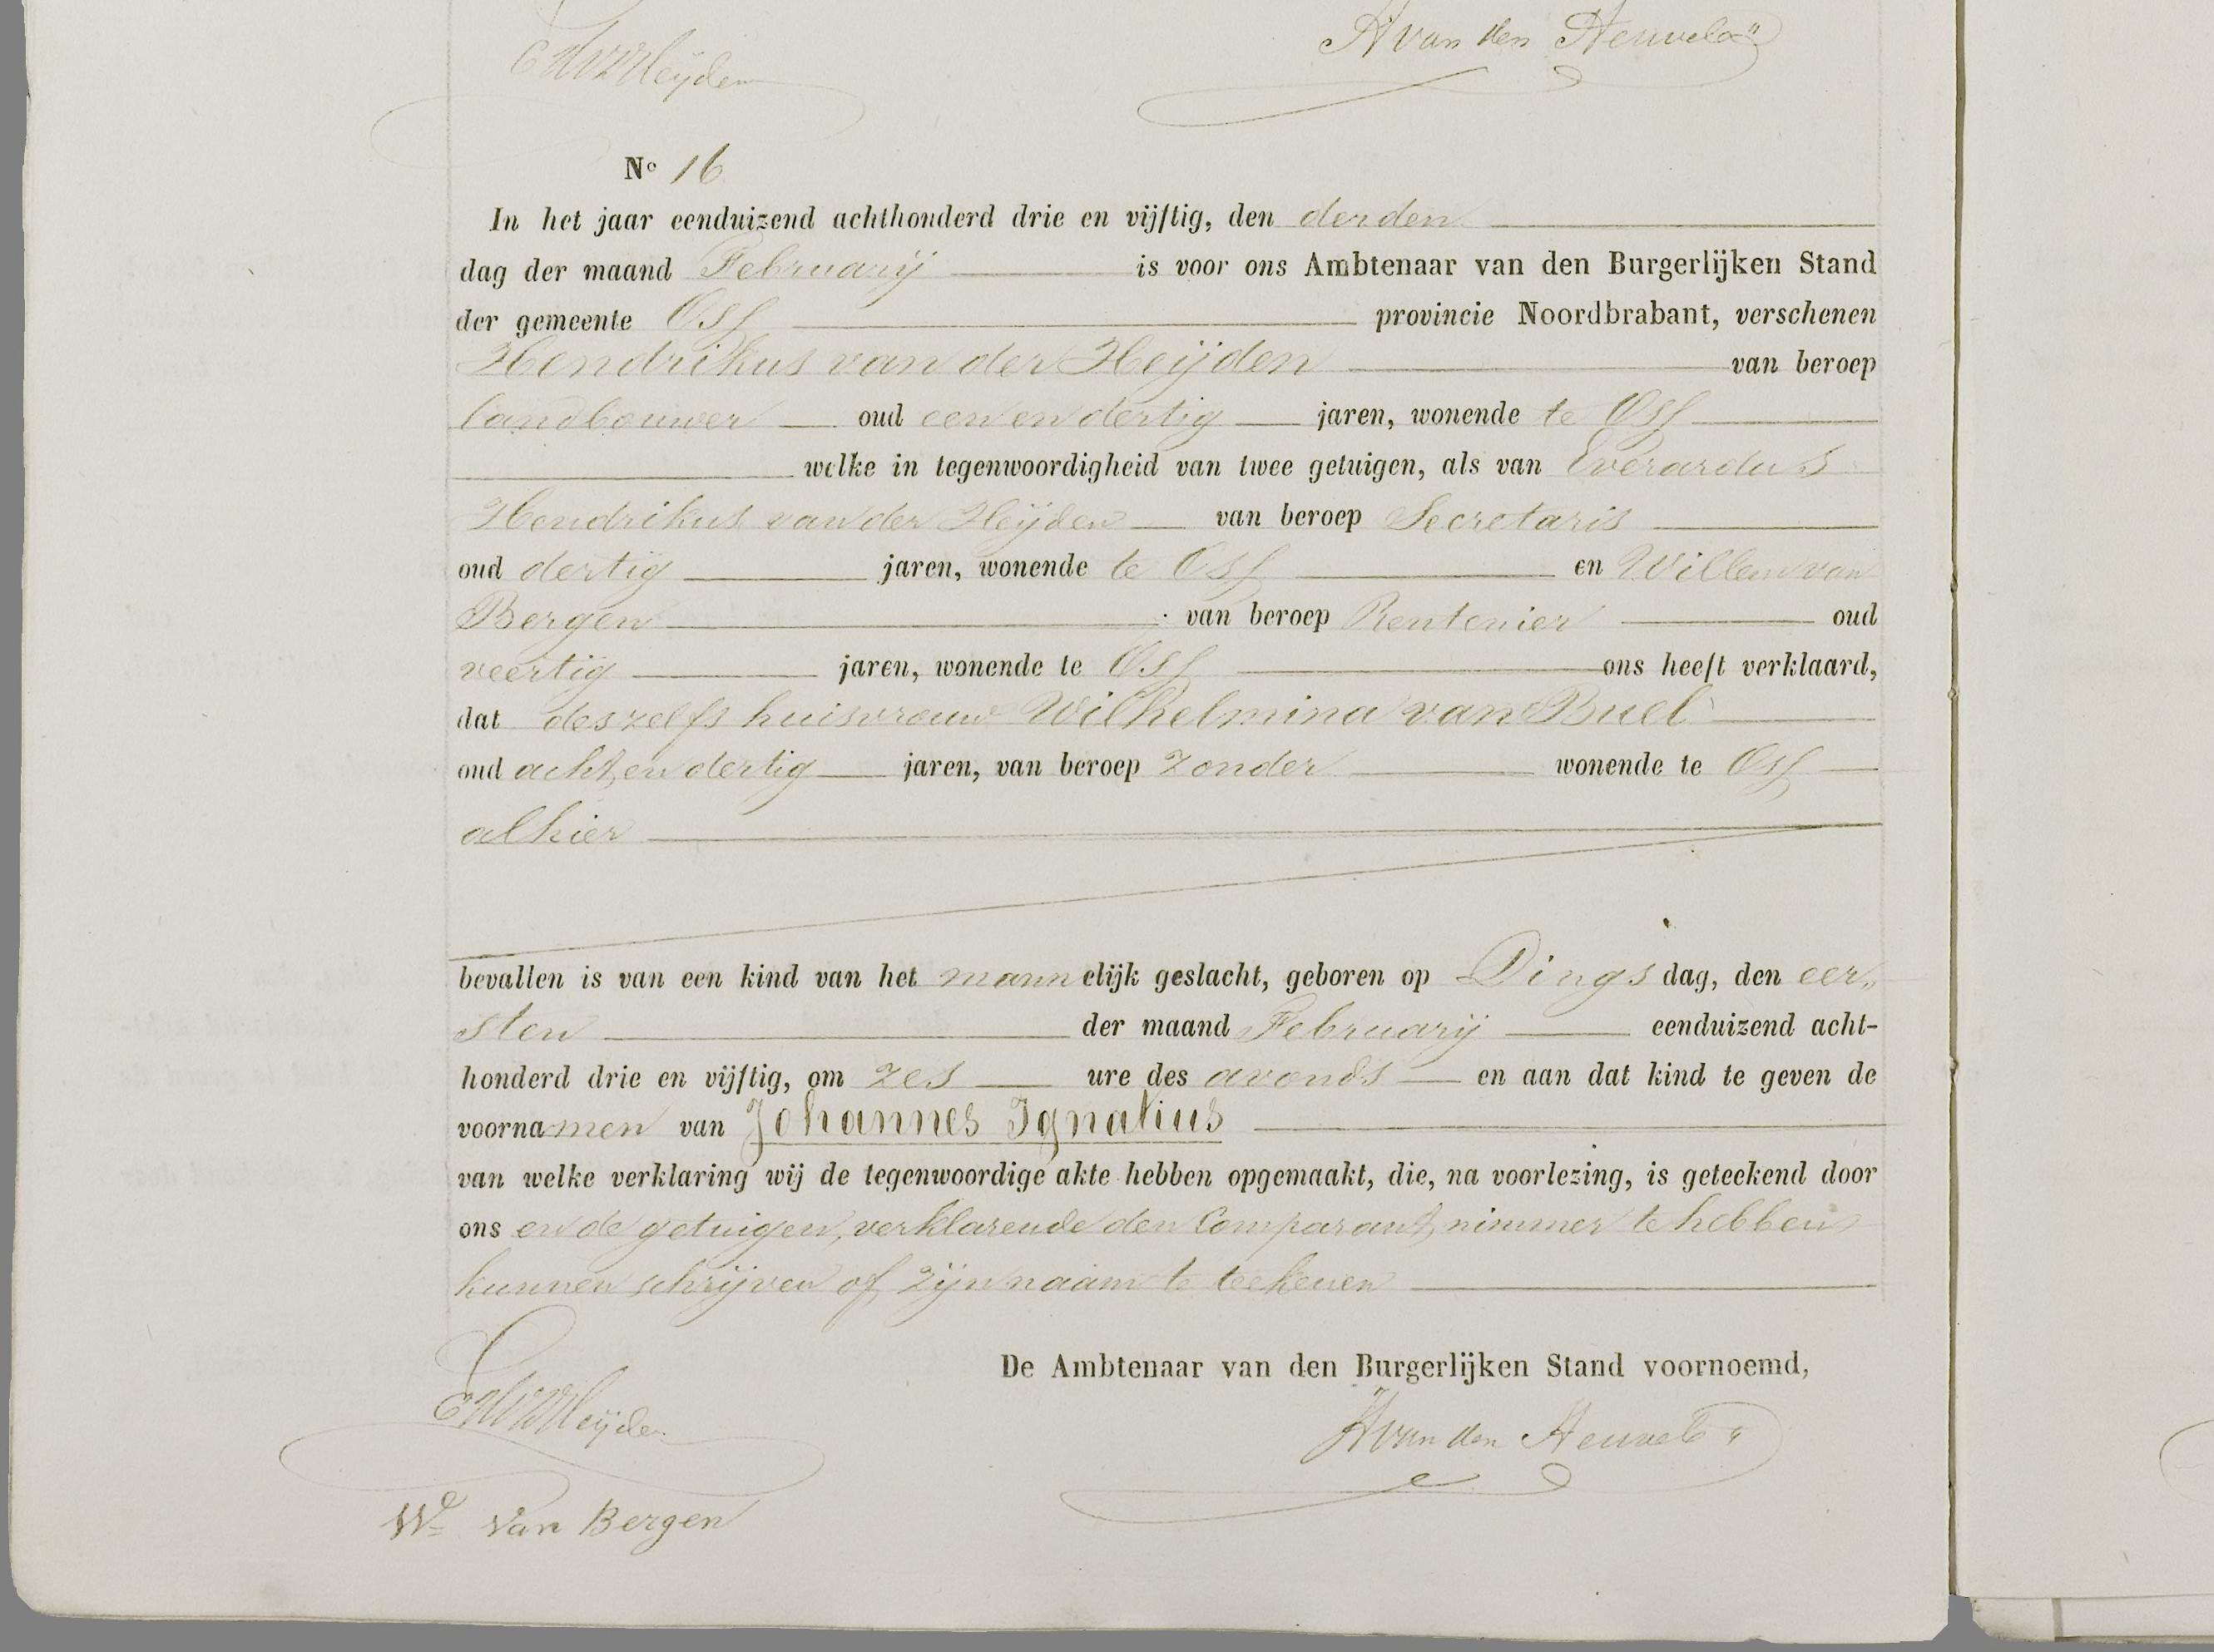 EHvdHeijden
A van den Heuvel
Nº 16
In het jaar eenduizend achthonderd drie en vijftig, den derden
dag der maand Februarij is voor ons Ambtenaar van den Burgerlijken Stand
der gemeente Oss provincie Noordbrabant, verschenen
Hendrikus van der Heijden van beroep
landbouwer oud een en dertig jaren, wonende te Oss
welke in tegenwoordigheid van twee getuigen, als van Everardus
Hendrikus van der Heijden van beroep Secretaris
oud dertig jaren, wonende te Oss en Willem van
Bergen van beroep Rentenier oud
veertig jaren, wonende te Oss ons heeft verklaard,
dat deszelfs huisvrouw Wilhelmina van Buel
oud acht en dertig jaren, van beroep zonder wonende te Oss
alhier
bevallen is van een kind van het mannelijk geslacht, geboren op Dingsdag, den eer„
sten der maand Februarij eenduizend acht-
honderd drie en vijftig, om zes ure des avonds en aan dat kind te geven de
voornamen van Johannes Ignatius
van welke verklaring wij de tegenwoordige akte hebben opgemaakt, die, na voorlezing, is geteekend door
ons en de getuigen, verklarende den Comparant, nimmer te hebben
kunnen schrijven of zijn naam te teekenen
De Ambtenaar van den Burgerlijken Stand voornoemd,
EHvdHeijden
A van den Heuvel
Wm van Bergen